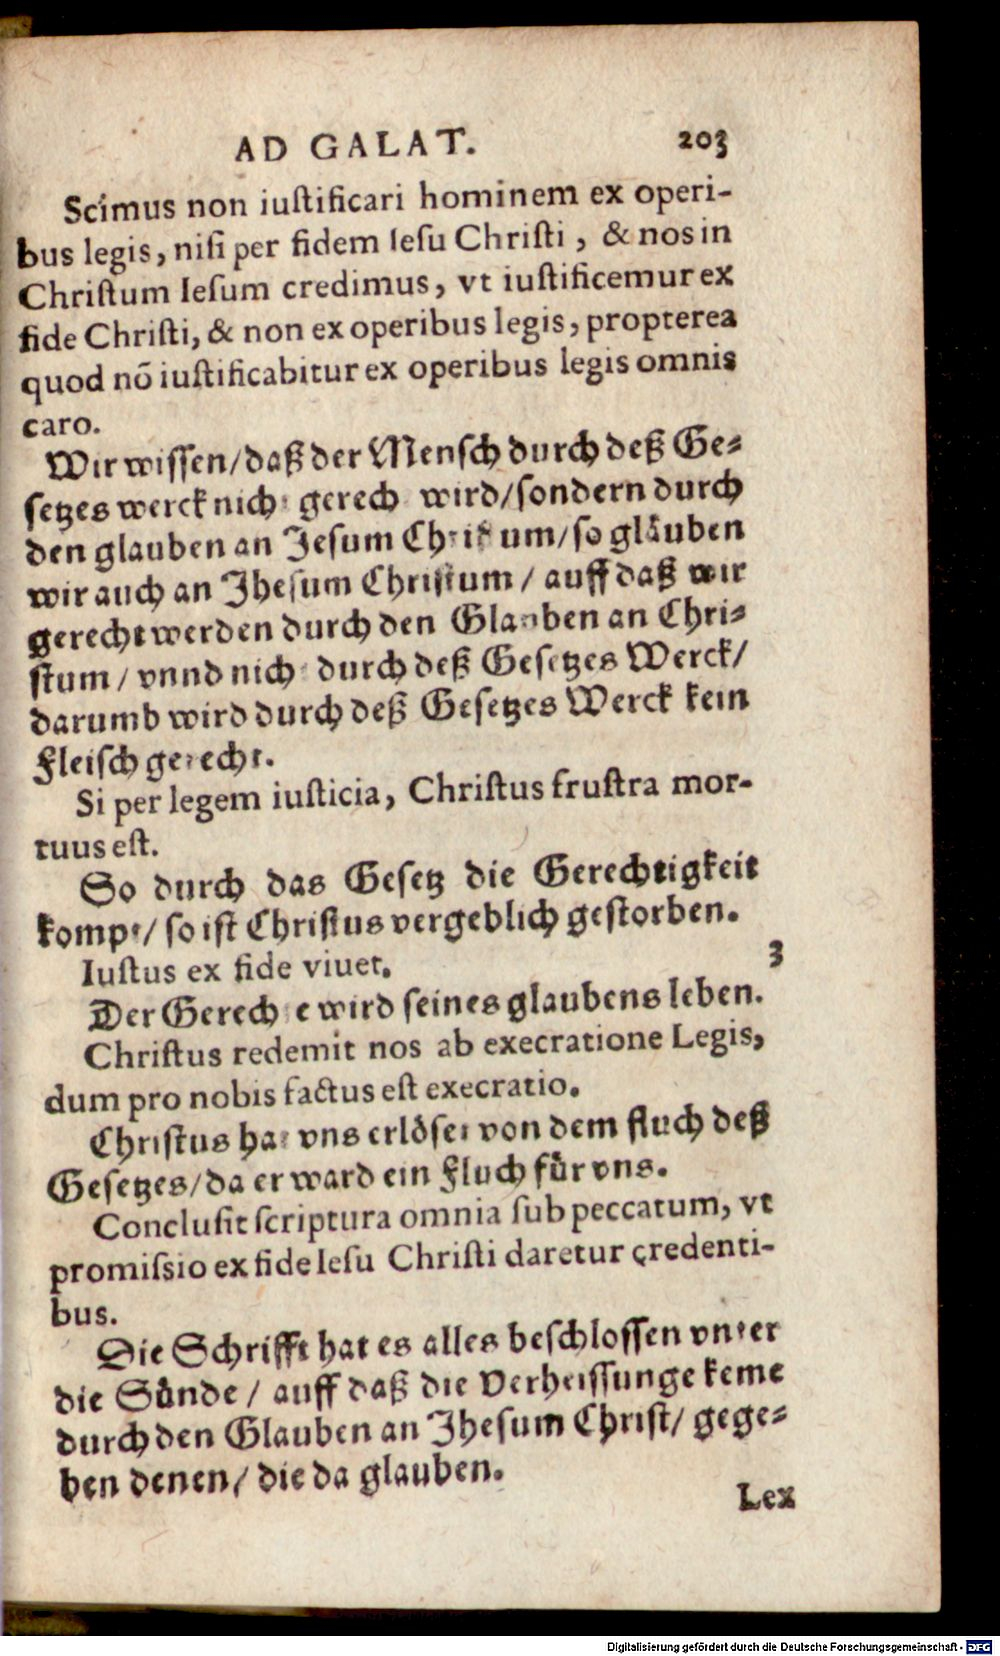 AD GALAT. 203
Scimus non iustificari hominem ex operi-
bus legis, nisi per fidem Iesu Christi, & nos in
Christum Iesum credimus, vt iustificemur ex
fide Christi, & non ex operibus legis, propterea
quod nō iustificabitur ex operibus legis omnis
caro.
Wir wissen/daß der Mensch durch deß Ge-
setzes werck nicht gerecht wird/sondern durch
den glauben an Jesum Christum/so gläuben
wir auch an Jhesum Christum/auff daß wir
gerecht werden durch den Glauben an Chri-
stum/vnnd nicht durch deß Gesetzes Werck/
darumb wird durch deß Gesetzes Werck kein
Fleisch gerecht.
Si per legem iusticia, Christus frustra mor-
tuus est.
So durch das Gesetz die Gerechtigkeit
kompt/so ist Christus vergeblich gestorben.
Iustus ex fide viuet. 3
Der Gerechte wird seines glaubens leben.
Christus redemit nos ab execratione Legis,
dum pro nobis factus est execratio.
Christus hat vns erlöset von dem fluch deß
Gesetzes/da er ward ein Fluch für vns.
Conclusit scriptura omnia sub peccatum, vt
promissio ex fide Iesu Christi daretur credenti-
bus.
Die Schrifft hat es alles beschlossen vnter
die Sünde/auff daß die Verheissunge keme
durch den Glauben an Jhesum Christ/gege-
ben denen/die da glauben.
Lex
Digitalisierung gefördert durch die Deutsche Forschungsgemeinschaft - DFG